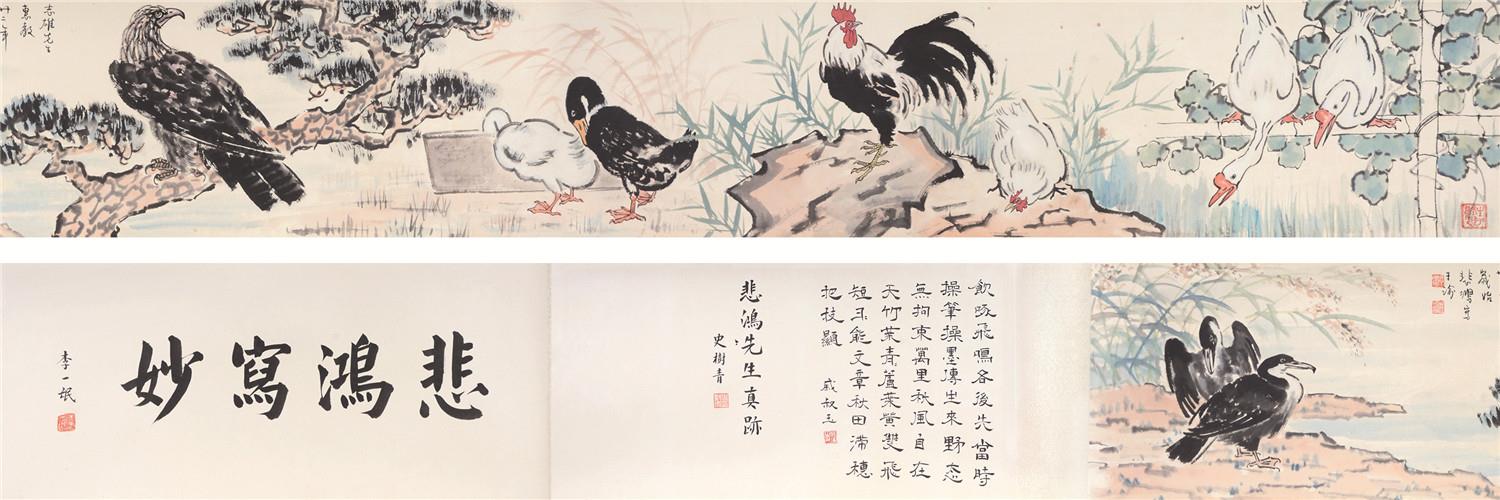 志雄先生
惠教
卅二年
歲始
悲鴻寫
于渝
飲啄飛鳴各後先當時
操筆操墨傳生來野态
無拘束萬里秋風自在
天竹葉青蘆葉黃雙飛
短 能文章秋田滯穗
把枝顯
戚叔玉
悲鴻先生真跡
史樹青
悲鴻寫妙
李一氓